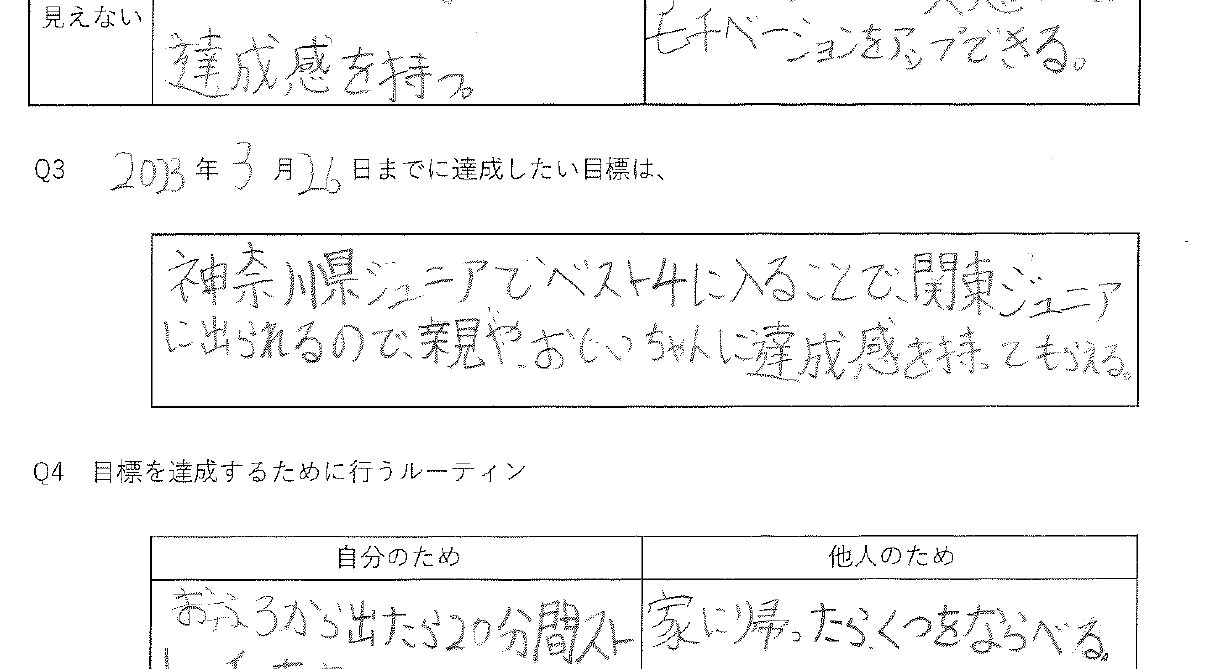 見えない
達成感を持つ。
モチベーションをアップできる。
Q3 2023年3月26日までに達成したい目標は、
神奈川県ジュニアでベスト4に入ることで、関東ジュニア
に出られるので、親や、おじいちゃんに達成感を持ってもらえる。
Q4 目標を達成するために行うルーティン
自分のため
他人のため
おふろから出たら20分間スト
家に帰ったらくつをならべる。